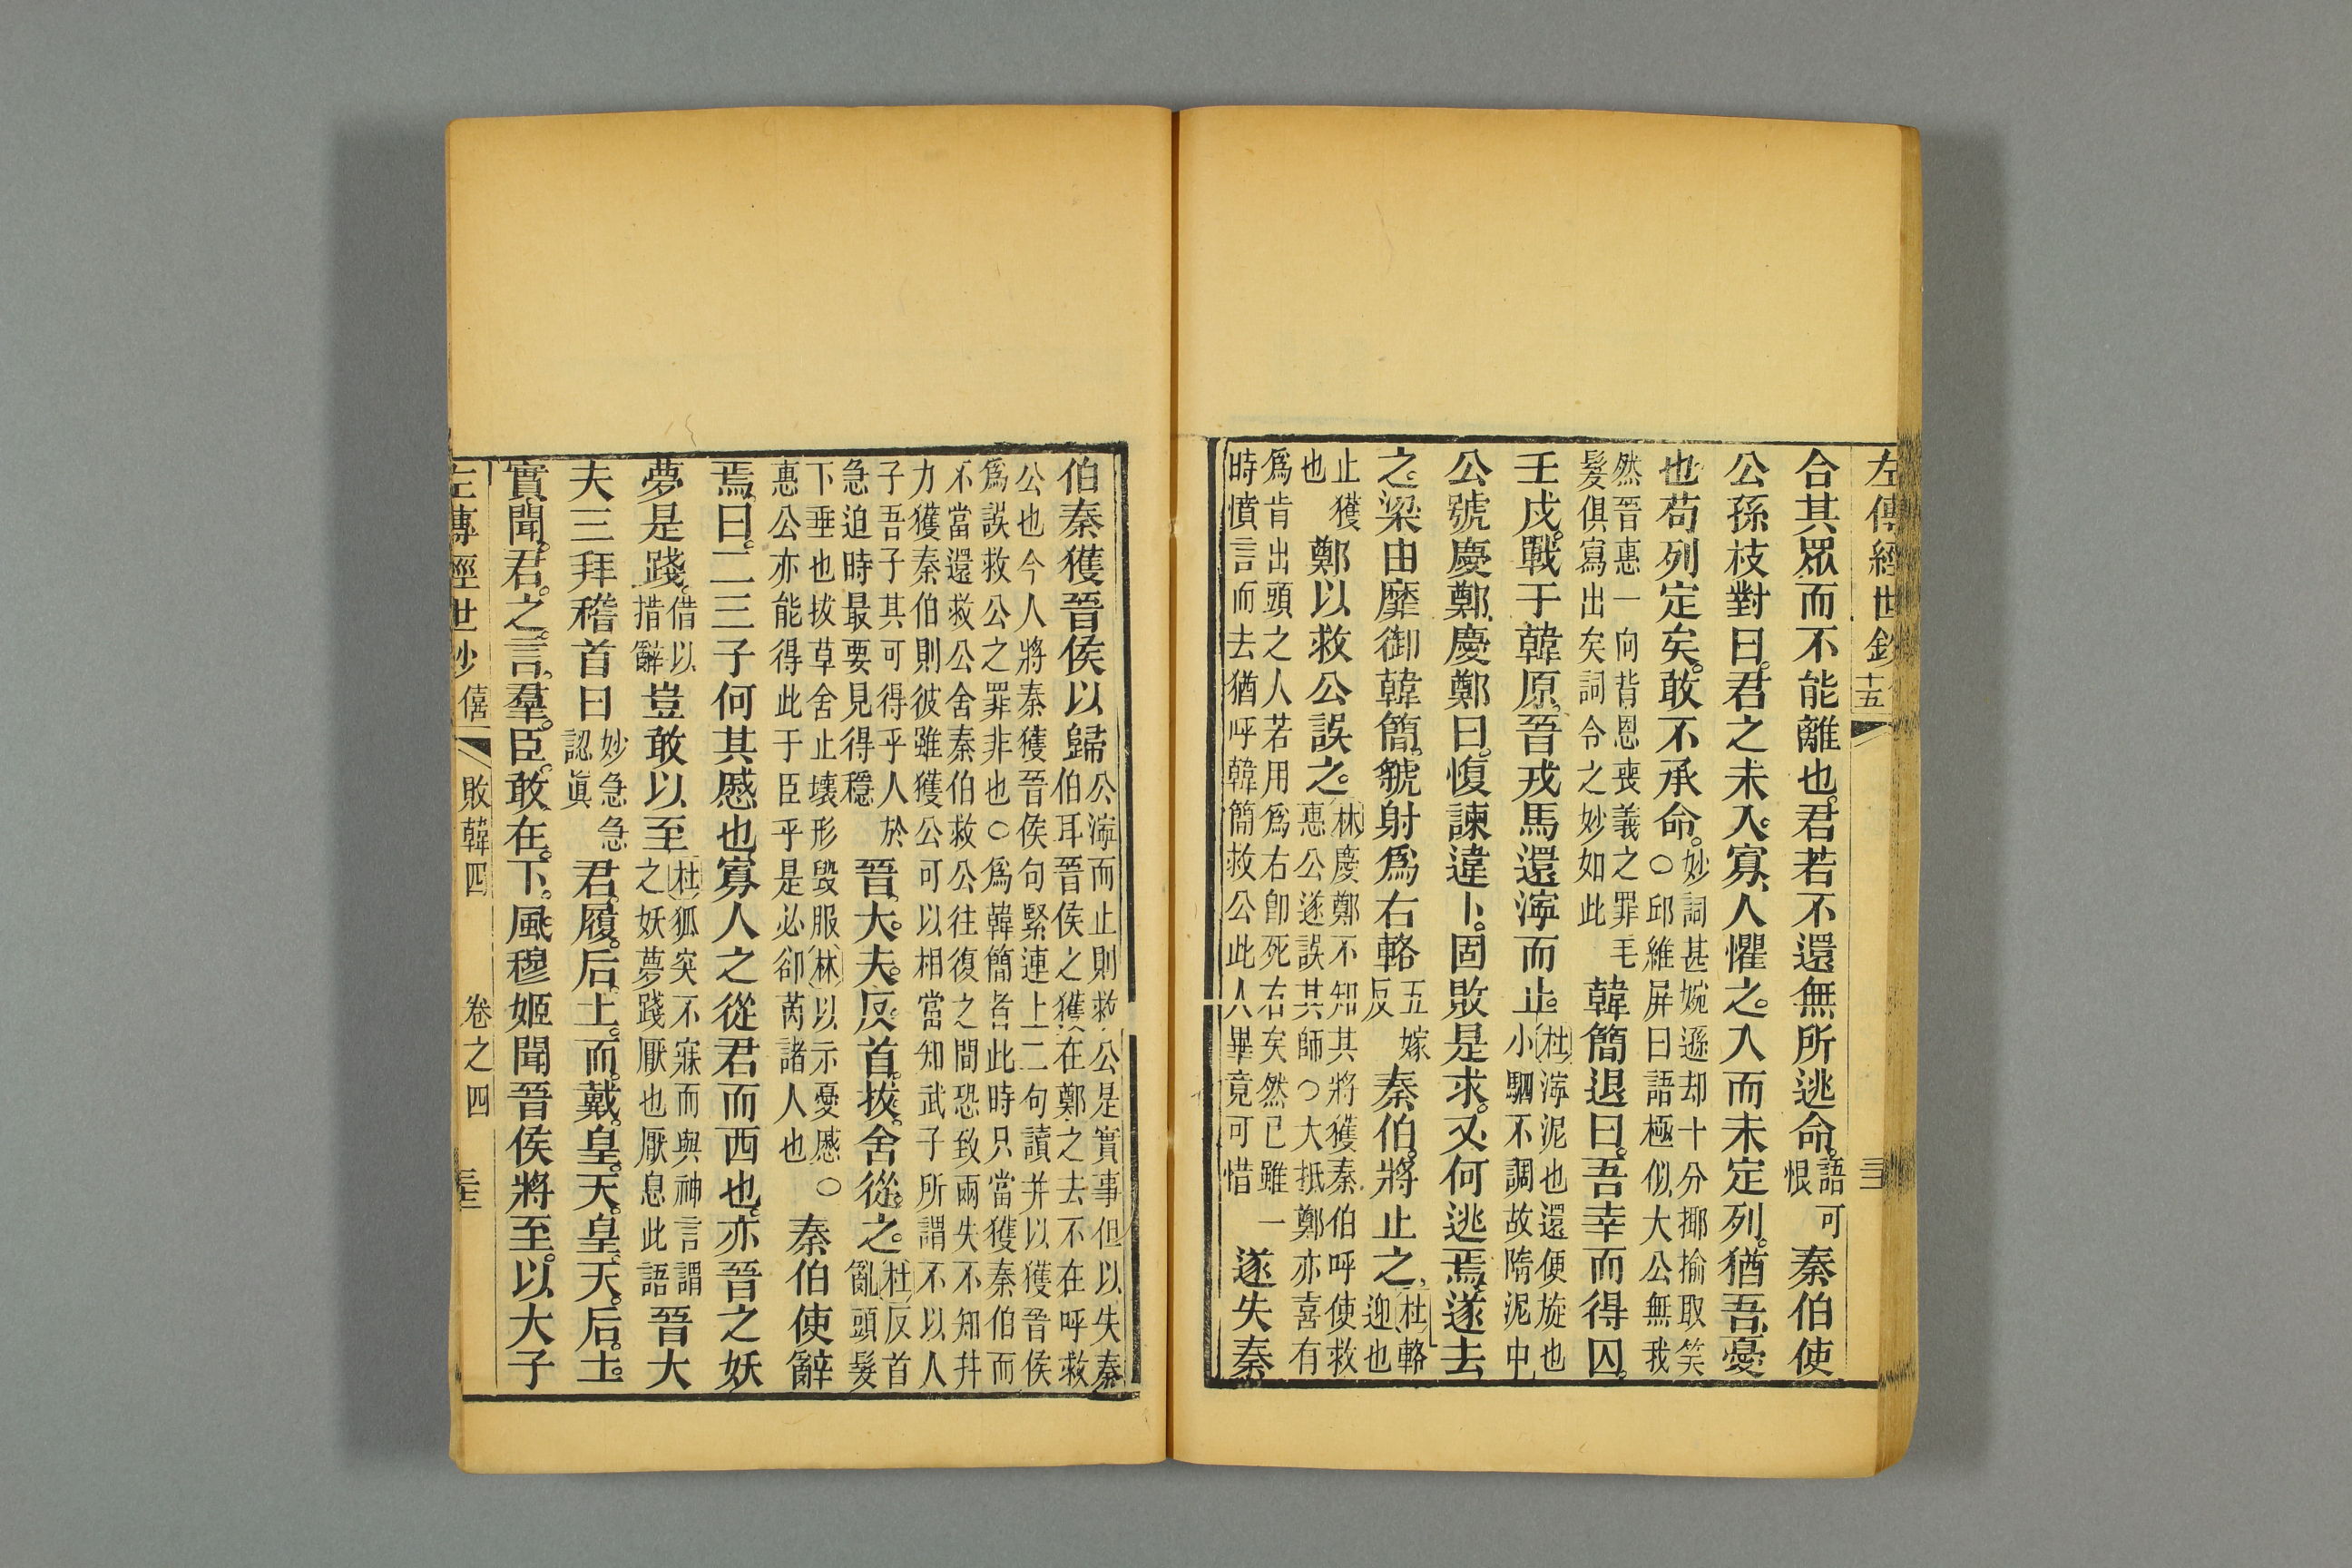 左傳經世鈔 十五 三
合其眾而不能離也君若不還無所逃命語可恨秦伯使
公孫枝對曰君之未入寡人懼之入而未定列猶吾憂
也苟列定矣敢不承命妙詞甚婉遜却十分揶揄取笑○邱維屏曰語極似大公無我
然晉惠一向背恩喪義之罪毛髮俱寫出矣詞令之妙如此韓簡退曰吾幸而得囚
壬戌戰于韓原晉戎馬還濘而止杜濘泥也還便旋也小駟不調故隋泥中
公號慶鄭慶鄭曰愎諫違卜固敗是求又何逃焉遂去
之梁由靡御韓簡虢射為右輅五嫁反秦伯將止之杜輅迎也
止獲也鄭以救公誤之林慶鄭不知其將獲秦伯呼使救惠公遂誤其師○大抵鄭亦喜有
為肯出頭之人若用為右卽死右矣然已雖一時憤言而去猶呼韓簡救公此人畢竟可惜遂失秦
伯秦獲晉侯以歸公濘而止則救公是實事但以失秦伯耳晉侯之獲在鄭之去不在呼救
公也今人將秦獲晉侯句緊連上二句讀并以獲晉侯為誤救公之罪非也○為韓簡者此時只當獲秦伯而
不當還救公舍秦伯救公往復之間恐致兩失不知幷力獲秦伯則彼雖獲公可以相當知武子所謂不以人
子吾子其可得乎人於急迫時最要見得穩晉大夫反首拔舍從之杜反首亂頭髮
下垂也拔草舍止壞形毀服林以示憂慼○惠公亦能得此于臣乎是必卻芮諸人也秦伯使辭
焉曰二三子何其慼也寡人之從君而西也亦晉之妖
夢是踐借以措辭豈敢以至杜狐突不寐而與神言謂之妖夢踐厭也厭息此語晉大
夫三拜稽首曰妙急急認眞君履后土而戴皇天皇天后土
實聞君之言羣臣敢在下風穆姬聞晉侯將至以大子
左傳經世鈔 僖 敗韓四 卷之四